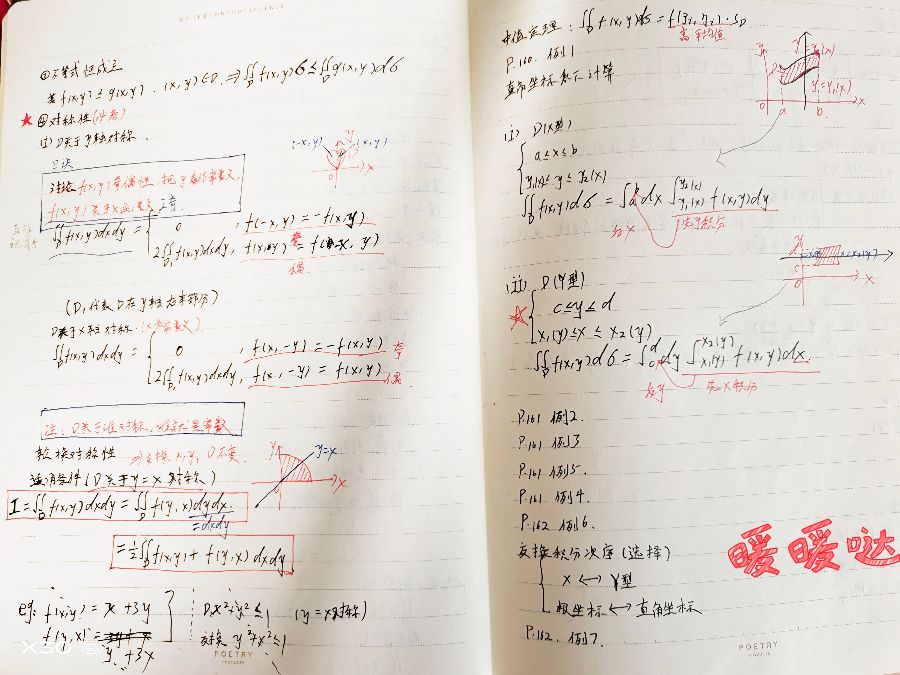 ③不等式恒成立
若 f(x,y) ≤ g(x,y), (x,y)∈D, ⇒ ∬_D f(x,y)dσ ≤ ∬_D g(x,y)dσ
★ ④对称性(必考)
(i) D关于y轴对称.
讨论 f(x,y) 奇偶性, 把y看作常数,
f(x,y) 关于x
∬_D f(x,y)dxdy = { 0 , f(-x,y) = -f(x,y) 奇
2∬_{D₁} f(x,y)dxdy, f(x,y) = f(-x, y)
偶
(-x,y) y (x,y)
x
0
(D₁代表D在y轴右半部分)
D关于x轴对称.
∬_D f(x,y)dxdy = { 0 , f(x,-y) = -f(x,y) 奇
2∬_{D₁} f(x,y)dxdy, f(x,-y) = f(x,y) 偶
注: D关于谁对称, 谁
轮换对称性 ⇒ 交换x,y, D不变.
适用条件(D关于y=x对称)
y y=x
0 x
I = ∬_D f(x,y)dxdy = ∬_D f(y,x)dydx.
=dxdy
= 1/2 ∬_D f(x,y) + f(y,x) dxdy
eg: f(x,y) = x +3y
f(y,x) =
y +3x
D: x²+y² ≤ 1 (y=x对称)
交换 y²+x² ≤ 1
POETRY
X30
中值定理: ∬_D f(x,y)dσ = f(ξ, η)·S_D
高 平均值
P.160. 例1
直角坐标系下计算
y y₂(x)
D
y=y₁(x)
0 a b x
(i) D(X型)
{ a≤x≤b
y₁(x) ≤ y ≤ y₂(x)
∬_D f(x,y)dσ = ∫_a^b dx ∫_{y₁(x)}^{y₂(x)} f(x,y)dy
后x 先y积分
y
x=x₂(y)
x
0
(ii) D(Y型)
★ { c≤y≤d
x₁(y) ≤ x ≤ x₂(y)
∬_D f(x,y)dσ = ∫_c^d dy ∫_{x₁(y)}^{x₂(y)} f(x,y)dx.
后y 先x积分
P.161 例2.
P.161 例3
P.161 例5.
P.161 例4.
P.162 例6.
交换积分次序(选择)
{ X ↔ Y型
极坐标 ↔ 直角坐标
P.162. 例7
暖暖哒
POETRY